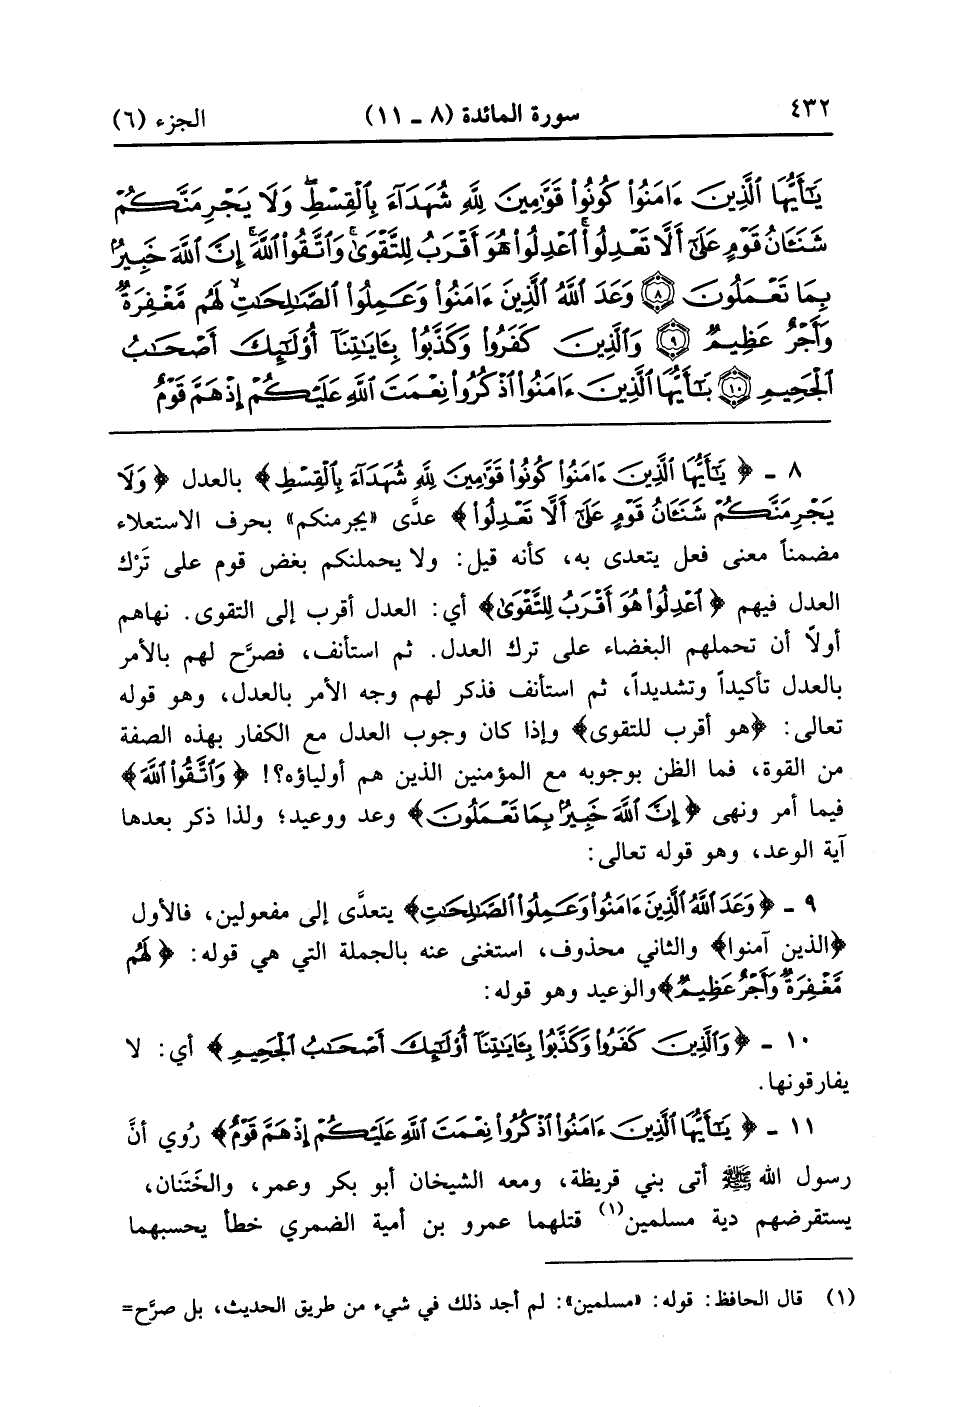 ٤٣٢ سورة المائدة (٨ ـ ١١) الجزء (٦)
يَٰٓأَيُّهَا ٱلَّذِينَ ءَامَنُوا۟ كُونُوا۟ قَوَّٰمِينَ لِلَّهِ شُهَدَآءَ بِٱلْقِسْطِ ۖ وَلَا يَجْرِمَنَّكُمْ
شَنَـَٔانُ قَوْمٍ عَلَىٰٓ أَلَّا تَعْدِلُوا۟ ۚ ٱعْدِلُوا۟ هُوَ أَقْرَبُ لِلتَّقْوَىٰ ۖ وَٱتَّقُوا۟ ٱللَّهَ ۚ إِنَّ ٱللَّهَ خَبِيرٌۢ
بِمَا تَعْمَلُونَ ٨ وَعَدَ ٱللَّهُ ٱلَّذِينَ ءَامَنُوا۟ وَعَمِلُوا۟ ٱلصَّٰلِحَٰتِ ۙ لَهُم مَّغْفِرَةٌ
وَأَجْرٌ عَظِيمٌ ٩ وَٱلَّذِينَ كَفَرُوا۟ وَكَذَّبُوا۟ بِـَٔايَٰتِنَآ أُو۟لَٰٓئِكَ أَصْحَٰبُ
ٱلْجَحِيمِ ١٠ يَٰٓأَيُّهَا ٱلَّذِينَ ءَامَنُوا۟ ٱذْكُرُوا۟ نِعْمَتَ ٱللَّهِ عَلَيْكُمْ إِذْ هَمَّ قَوْمٌ
٨ ـ ﴿يَٰٓأَيُّهَا ٱلَّذِينَ ءَامَنُوا۟ كُونُوا۟ قَوَّٰمِينَ لِلَّهِ شُهَدَآءَ بِٱلْقِسْطِ﴾ بالعدل ﴿وَلَا
يَجْرِمَنَّكُمْ شَنَـَٔانُ قَوْمٍ عَلَىٰٓ أَلَّا تَعْدِلُوا۟﴾ عدَّى «يجرمنكم» بحرف الاستعلاء
مضمناً معنى فعل يتعدى به، كأنه قيل: ولا يحملنكم بغض قوم على تَرْك
العدل فيهم ﴿ٱعْدِلُوا۟ هُوَ أَقْرَبُ لِلتَّقْوَىٰ﴾ أي: العدل أقرب إلى التقوى. نهاهم
أولاً أن تحملهم البغضاء على ترك العدل. ثم استأنف، فصرَّح لهم بالأمر
بالعدل تأكيداً وتشديداً، ثم استأنف فذكر لهم وجه الأمر بالعدل، وهو قوله
تعالى: ﴿هو أقرب للتقوى﴾ وإذا كان وجوب العدل مع الكفار بهذه الصفة
من القوة، فما الظن بوجوبه مع المؤمنين الذين هم أولياؤه؟! ﴿وَٱتَّقُوا۟ ٱللَّهَ﴾
فيما أمر ونهى ﴿إِنَّ ٱللَّهَ خَبِيرٌۢ بِمَا تَعْمَلُونَ﴾ وعد ووعيد؛ ولذا ذكر بعدها
آية الوعد، وهو قوله تعالى:
٩ ـ ﴿وَعَدَ ٱللَّهُ ٱلَّذِينَ ءَامَنُوا۟ وَعَمِلُوا۟ ٱلصَّٰلِحَٰتِ﴾ يتعدَّى إلى مفعولين، فالأول
﴿الذين آمنوا﴾ والثاني محذوف، استغنى عنه بالجملة التي هي قوله: ﴿لَهُم
مَّغْفِرَةٌ وَأَجْرٌ عَظِيمٌ﴾ والوعيد وهو قوله:
١٠ ـ ﴿وَٱلَّذِينَ كَفَرُوا۟ وَكَذَّبُوا۟ بِـَٔايَٰتِنَآ أُو۟لَٰٓئِكَ أَصْحَٰبُ ٱلْجَحِيمِ﴾ أي: لا
يفارقونها.
١١ ـ ﴿يَٰٓأَيُّهَا ٱلَّذِينَ ءَامَنُوا۟ ٱذْكُرُوا۟ نِعْمَتَ ٱللَّهِ عَلَيْكُمْ إِذْ هَمَّ قَوْمٌ﴾ رُوي أنَّ
رسول الله ﷺ أتى بني قريظة، ومعه الشيخان أبو بكر وعمر، والخَتَنان،
يستقرضهم دية مسلمين(١) قتلهما عمرو بن أمية الضمري خطأ يحسبهما
(١) قال الحافظ: قوله: «مسلمين»: لم أجد ذلك في شيء من طريق الحديث، بل صرَّح=